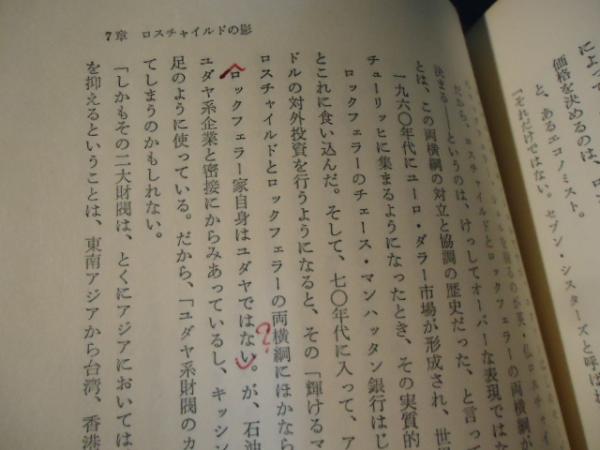 7章 ロスチャイルドの影
によって
価格を決めるのは、ロ
と、あるエコノミスト。
「それだけではない。セブン・シスターズと呼ば
だから、ロスチャイルドとロックフェラーの両横綱が
決まる――というのは、けっしてオーバーな表現ではな
とは、この両横綱の対立と協調の歴史だった、と言って
一九六〇年代にユーロ・ダラー市場が形成され、世
チューリッヒに集まるようになったとき、その実質的
ロックフェラーのチェース・マンハッタン銀行はじ
とこれに食い込んだ。そして、七〇年代に入って、ア
ドルの対外投資を行うようになると、その「輝けるマ
ロスチャイルドとロックフェラーの両横綱にほかなら
ロックフェラー家自身はユダヤではない。が、石油
ユダヤ系企業と密接にからみあっているし、キッシン
足のように使っている。だから、「ユダヤ系財閥のカ
てしまうのかもしれない。
「しかもその二大財閥は、とくにアジアにおいては
を抑えるということは、東南アジアから台湾、香港